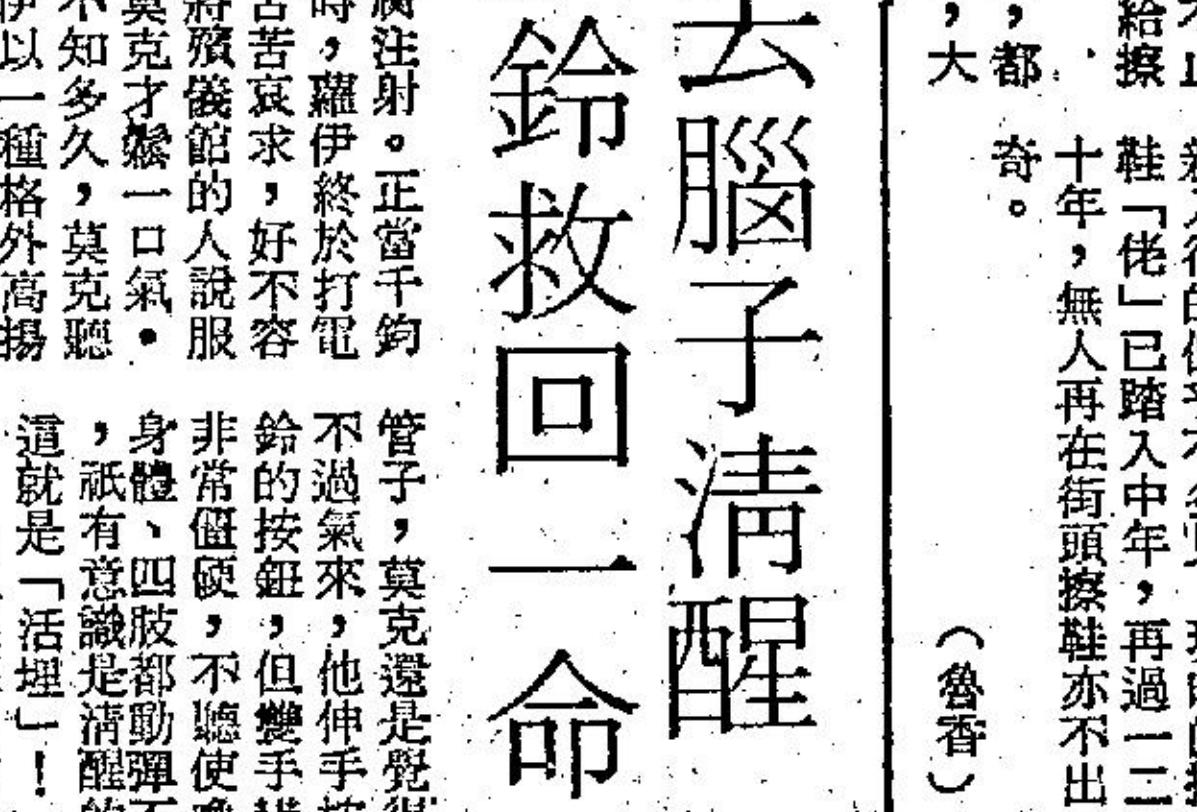 給擦
，都
，大
鞋「佬」已踏入中年，再過一二
十年，無人再在街頭擦鞋亦不出
奇。
（魯香）
去腦子清醒
鈴救回一命
腐注射。正當千鈞
時，蘿伊終於打電
苦苦哀求，好不容
將殯儀館的人說服
莫克才鬆一口氣．
不知多久，莫克聽
伊以一種格外高揚
管子，莫克還是覺得
不過氣來，他伸手按
鈴的按鈕，但雙手
非常僵硬，不聽使喚
身體、四肢都動彈不
，祇有意識是清醒的
這就是「活埋」！